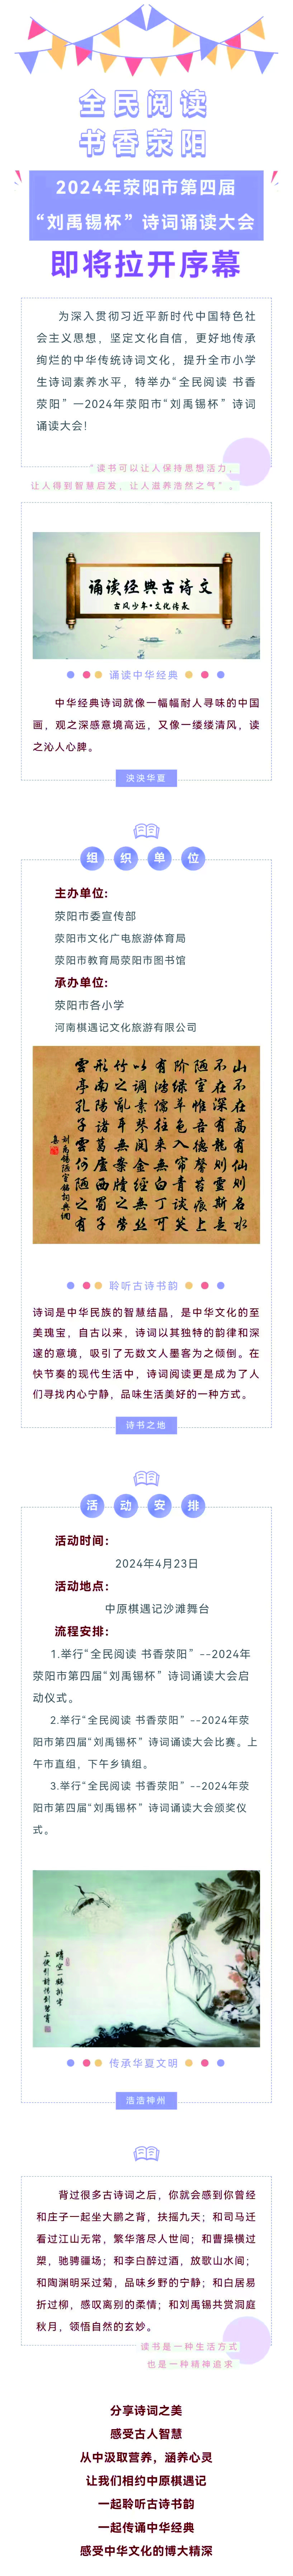 全民阅读
书香荥阳
2024年荥阳市第四届
“刘禹锡杯”诗词诵读大会
即将拉开序幕
为深入贯彻习近平新时代中国特色社
会主义思想，坚定文化自信，更好地传承
绚烂的中华传统诗词文化，提升全市小学
生诗词素养水平，特举办“全民阅读 书香
荥阳”—2024年荥阳市“刘禹锡杯”诗词
诵读大会！
“读书可以让人保持思想活力，
让人得到智慧启发，让人滋养浩然之气”。
诵读经典古诗文
古风少年·文化传承
诵读中华经典
中华经典诗词就像一幅幅耐人寻味的中国
画，观之深感意境高远，又像一缕缕清风，读
之沁人心脾。
泱泱华夏
组织单位
主办单位:
荥阳市委宣传部
荥阳市文化广电旅游体育局
荥阳市教育局荥阳市图书馆
承办单位:
荥阳市各小学
河南棋遇记文化旅游有限公司
山不在高有仙则名水
不在深有龙则灵斯是
陋室惟吾德馨苔痕上
阶绿草色入帘青谈笑
有鸿儒往来無白丁可
以调素琴阅金经無丝
竹之乱耳無案牍之劳
形南阳诸葛庐西蜀子
雲亭孔子雲何陋之有
刘禹锡陋室铭
聆听古诗书韵
诗词是中华民族的智慧结晶，是中华文化的至
美瑰宝，自古以来，诗词以其独特的韵律和深
邃的意境，吸引了无数文人墨客为之倾倒。在
快节奏的现代生活中，诗词阅读更是成为了人
们寻找内心宁静，品味生活美好的一种方式。
诗书之地
活动安排
活动时间：
2024年4月23日
活动地点：
中原棋遇记沙滩舞台
流程安排：
1.举行“全民阅读 书香荥阳”--2024年
荥阳市第四届“刘禹锡杯”诗词诵读大会启
动仪式。
2.举行“全民阅读 书香荥阳”--2024年荥
阳市第四届“刘禹锡杯”诗词诵读大会比赛。上
午市直组，下午乡镇组。
3.举行“全民阅读 书香荥阳”--2024年荥
阳市第四届“刘禹锡杯”诗词诵读大会颁奖仪
式。
晴空一鹤排云
上便引诗情到碧霄
传承华夏文明
浩浩神州
背过很多古诗词之后，你就会感到你曾经
和庄子一起坐大鹏之背，扶摇九天；和司马迁
看过江山无常，繁华落尽人世间；和曹操横过
槊，驰骋疆场；和李白醉过酒，放歌山水间；
和陶渊明采过菊，品味乡野的宁静；和白居易
折过柳，感叹离别的柔情；和刘禹锡共赏洞庭
秋月，领悟自然的玄妙。
读书是一种生活方式
也是一种精神追求
分享诗词之美
感受古人智慧
从中汲取营养，涵养心灵
让我们相约中原棋遇记
一起聆听古诗书韵
一起传诵中华经典
感受中华文化的博大精深